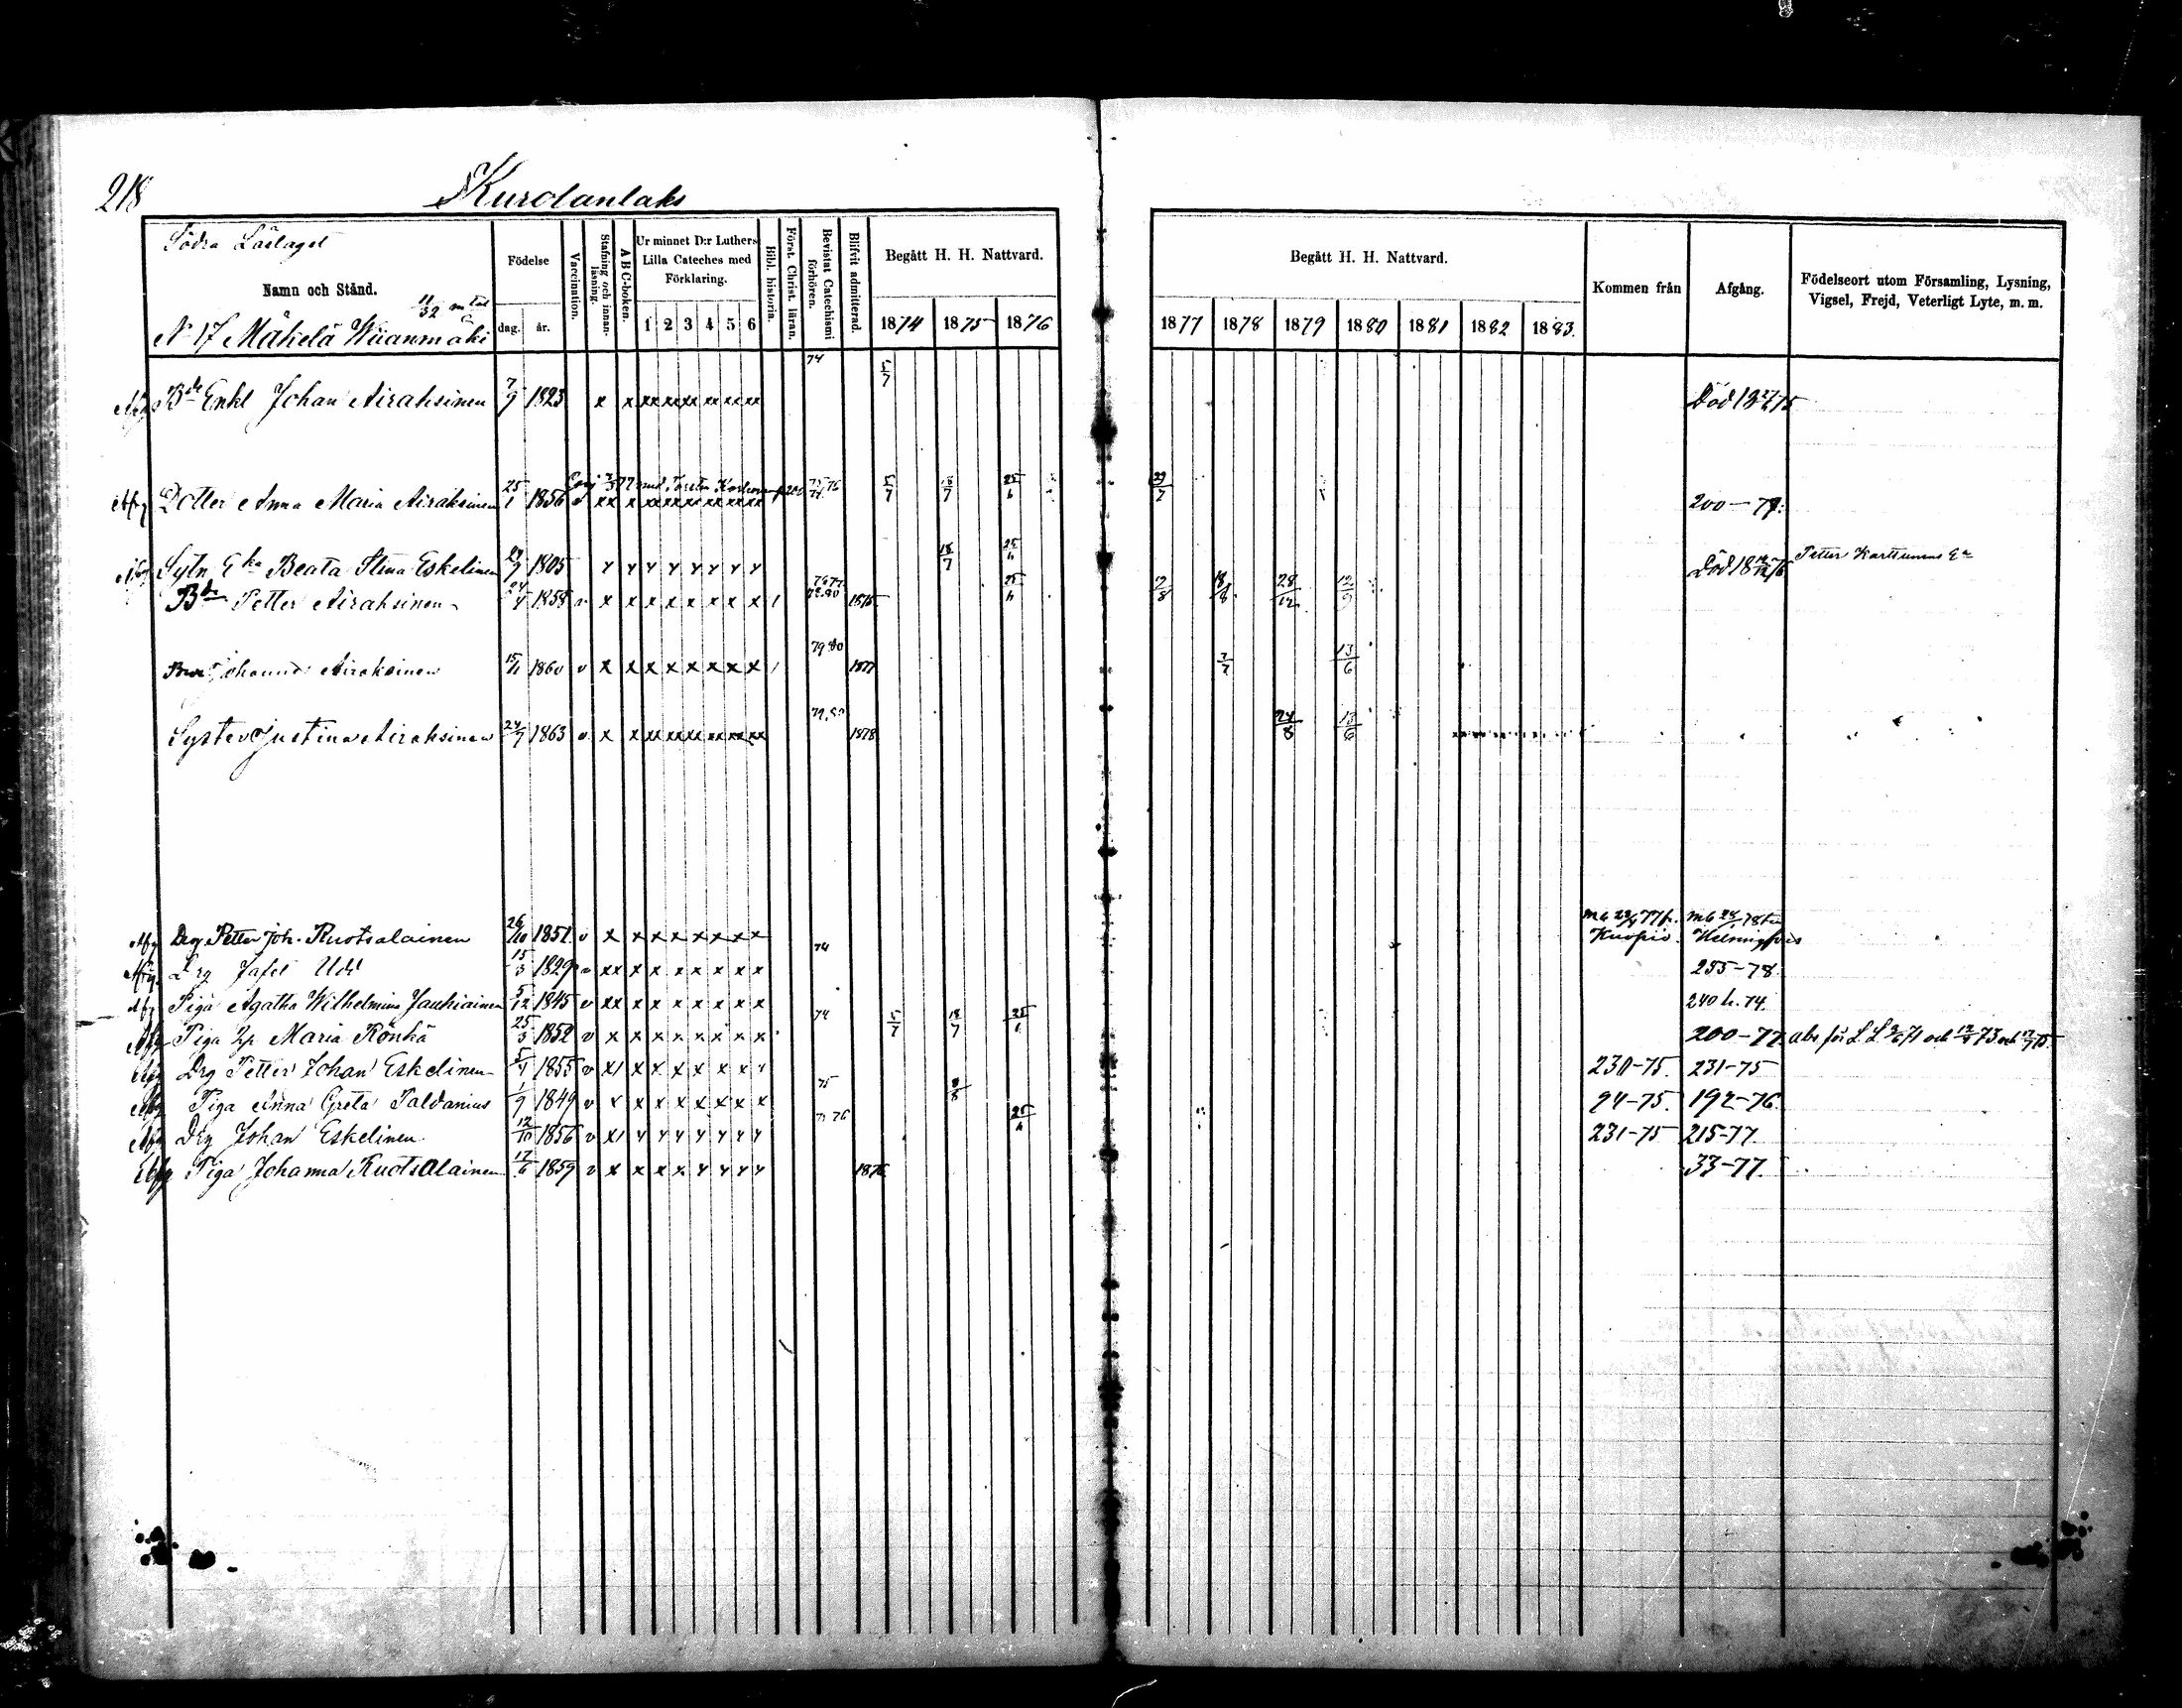 218
Kurolanlaks
Södra Läslaget
Namn och Stånd.
11/32 mtal
No 17 Mäkelä Wäänmäki
Födelse
dag. år.
Vaccination.
Stafning och innan-läsning.
ABC-boken.
Ur minnet D:r Luthers
Lilla Cateches med
Förklaring.
1 2 3 4 5 6
Bibl. historia.
Först. Christ. läran.
Bevistat Catechismi förhören.
Blifvit admitterad.
Begått H. H. Nattvard.
1874 1875 1876
Begått H. H. Nattvard.
1877 1878 1879 1880 1881 1882 1883.
Kommen från
Afgång.
Födelseort utom Församling, Lysning,
Vigsel, Frejd, Veterligt Lyte, m. m.
Afg Bde Enkl Johan Airaksinen 7/9 1823 x x xx xx xx xx xx xx 74 5/7 Död 18 75
Afg Dotter Anna Maria Airaksinen 25/1 1856 v xx x xx xx xx xx xx xx 5/7 18/7 25/6 200-77.
Afg Sytn Eka Beata Stina Eskelinen 1805 18/7 25/6 Död 18 76 Petter Karttunens Ea
Bde Petter Airaksinen 24/4 1858 v x x x x x x x x 1 1875 25/6 12/8 18/8 28/12 12/9
Johannes Airaksinen 15/11 1860 v x x x x x x x x 1 79 80 1877 7/7 13/6
Syster Justina Airaksinen 24/7 1863 v x x xx xx xx xx xx xx 79.80 1878 24/8 13/6
Afg Drg Petter Joh. Ruotsalainen 26/10 1851 v x x x x x x x x m b 77 fr. Kuopio. m b 78 Helsingfors
Afg Drg Jafet Udd 15/3 1829 v xx x x x x x x x 74 255-78.
Afg Piga Agatha Wilhelmina Jauhiainen 5/12 1845 v xx x x x x x x x 240 h. 74.
Afg Piga Maria Rönkä 25/3 1852 v x x x x x x x x 74 5/7 18/7 25/6 200-77.
Afg Drg Petter Johan Eskelinen 5/4 1855 v 230-75. 231-75
Afg Piga Anna Greta Paldanius 1/9 1849 v x x x x x x x x 75 8/8 94-75. 192-76.
Afg Drg Johan Eskelinen 12/10 1856 v 25/6 231-75 215-77.
Afg Piga Johanna Ruotsalainen 17/6 1859 v 33-77.